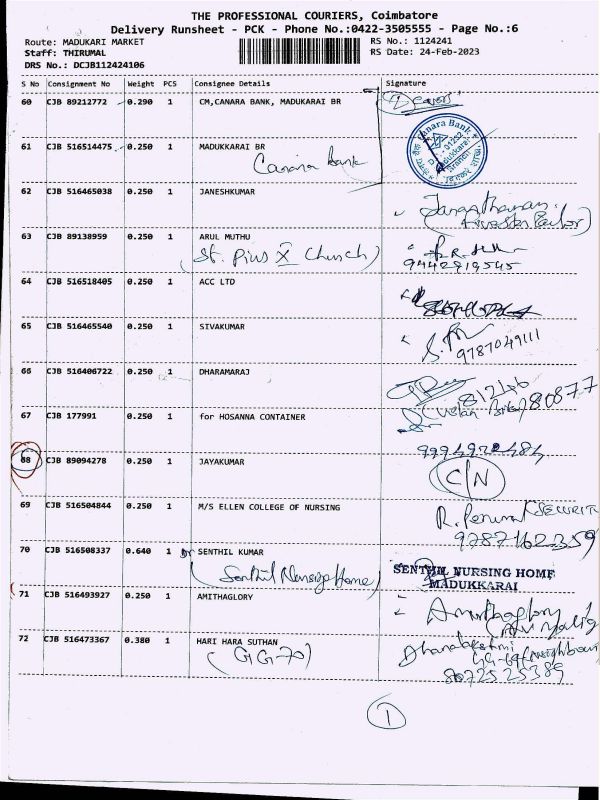 THE PROFESSIONAL COURIERS, Coimbatore
Delivery Runsheet - PCK - Phone No.:0422-3505555 - Page No.:6
Route: MADUKARI MARKET RS No.: 1124241
Staff: THIRUMAL RS Date: 24-Feb-2023
DRS No.: DCJB112424106
S No Consignment No Weight PCS Consignee Details Signature
60 CJB 89212772 0.290 1 CM,CANARA BANK, MADUKARAI BR
61 CJB 516514475 0.250 1 MADUKKARAI BR
Canara Bank
Canara Bank
62 CJB 516465038 0.250 1 JANESHKUMAR
63 CJB 89138959 0.250 1 ARUL MUTHU
(St. Pius X Church) 9442919545
64 CJB 516518405 0.250 1 ACC LTD
65 CJB 516465540 0.250 1 SIVAKUMAR
9787049111
66 CJB 516406722 0.250 1 DHARAMARAJ
67 CJB 177991 0.250 1 for HOSANNA CONTAINER
9994920484
68 CJB 89094278 0.250 1 JAYAKUMAR C/N
69 CJB 516504844 0.250 1 M/S ELLEN COLLEGE OF NURSING
R. Perumal
9787162359
70 CJB 516508337 0.640 1 Dr SENTHIL KUMAR
(Senthil Nursing Home) SENTHIL NURSING HOME
MADUKKARAI
71 CJB 516493927 0.250 1 AMITHAGLORY Amirthaglory
72 CJB 516473367 0.380 1 HARI HARA SUTHAN Dhanalakshmi
(GG-70) GG-69 (Neighbour)
8072525389
1